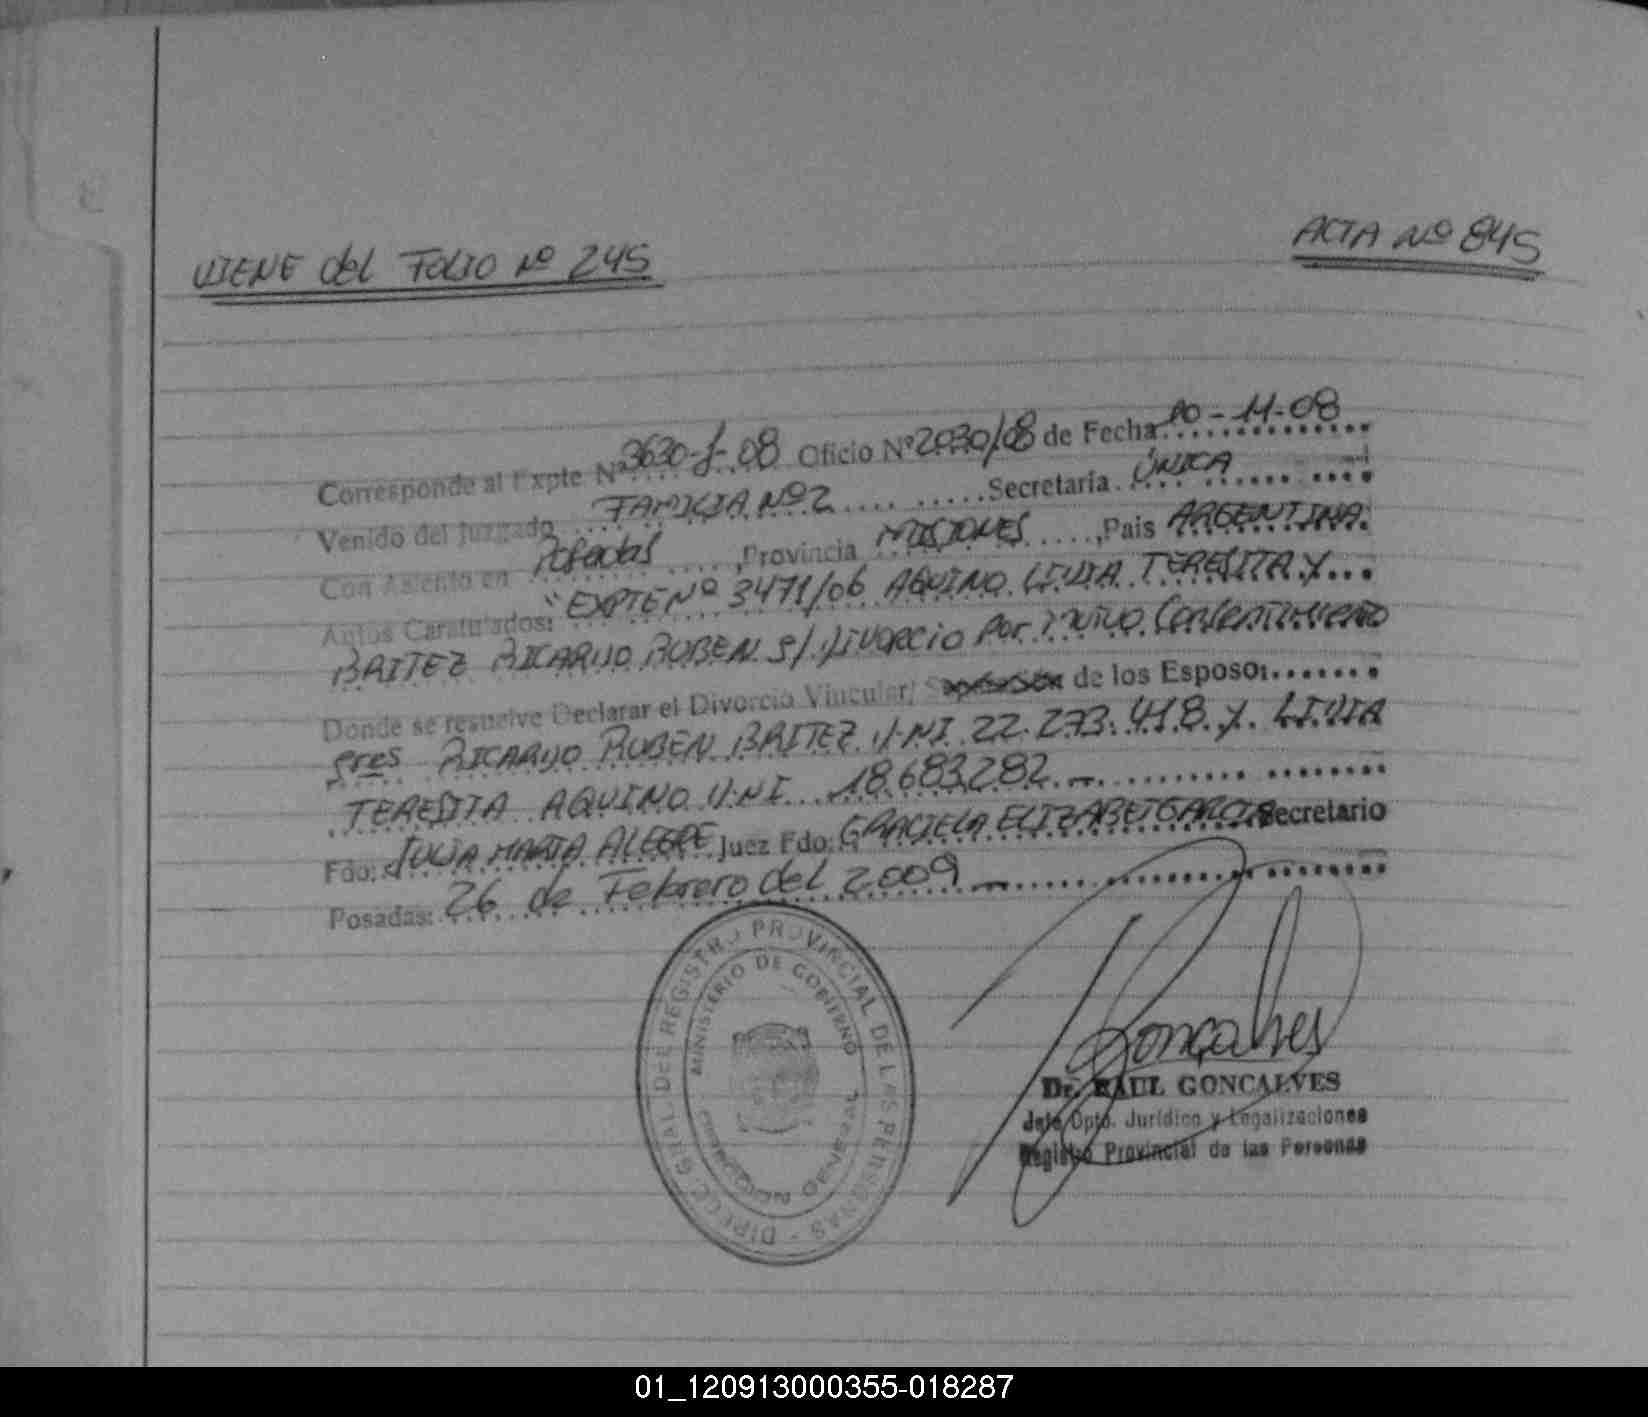 VIENE del FOLIO Nº 245
ACTA Nº 845
Corresponde al Expte Nº 3630-J-08 Oficio Nº 2030/08 de Fecha 10-11-08
Venido del Juzgado FAMILIA Nº 2 Secretaria ÚNICA
Con Asiento en Posadas, Provincia MISIONES, Pais ARGENTINA.
Autos Caratulados: "EXPTE Nº 3471/06 AQUINO LIVIA TERESITA Y
BRITEZ RICARDO RUBEN S/ DIVORCIO Por Mutuo Consentimiento
Donde se resuelve Declarar el Divorcio Vincular/ de los Esposos
RICARDO RUBEN BRITEZ D.NI 22.273.418 y LIVIA
TERESITA AQUINO D.NI 18.683.282.-
Fdo: JULIA MARTA ALEGRE Juez Fdo: GRACIELA ELIZABET GARCIA Secretario
Posadas: 26 de Febrero del 2009.-
DIRECC. GRAL. DEL REGISTRO PROVINCIAL DE LAS PERSONAS
MINISTERIO DE GOBIERNO
DIRECCION GENERAL
Goncalves
Dr. RAUL GONCALVES
Jefe Dpto. Jurídico y Legalizaciones
Registro Provincial de las Personas
01_120913000355-018287